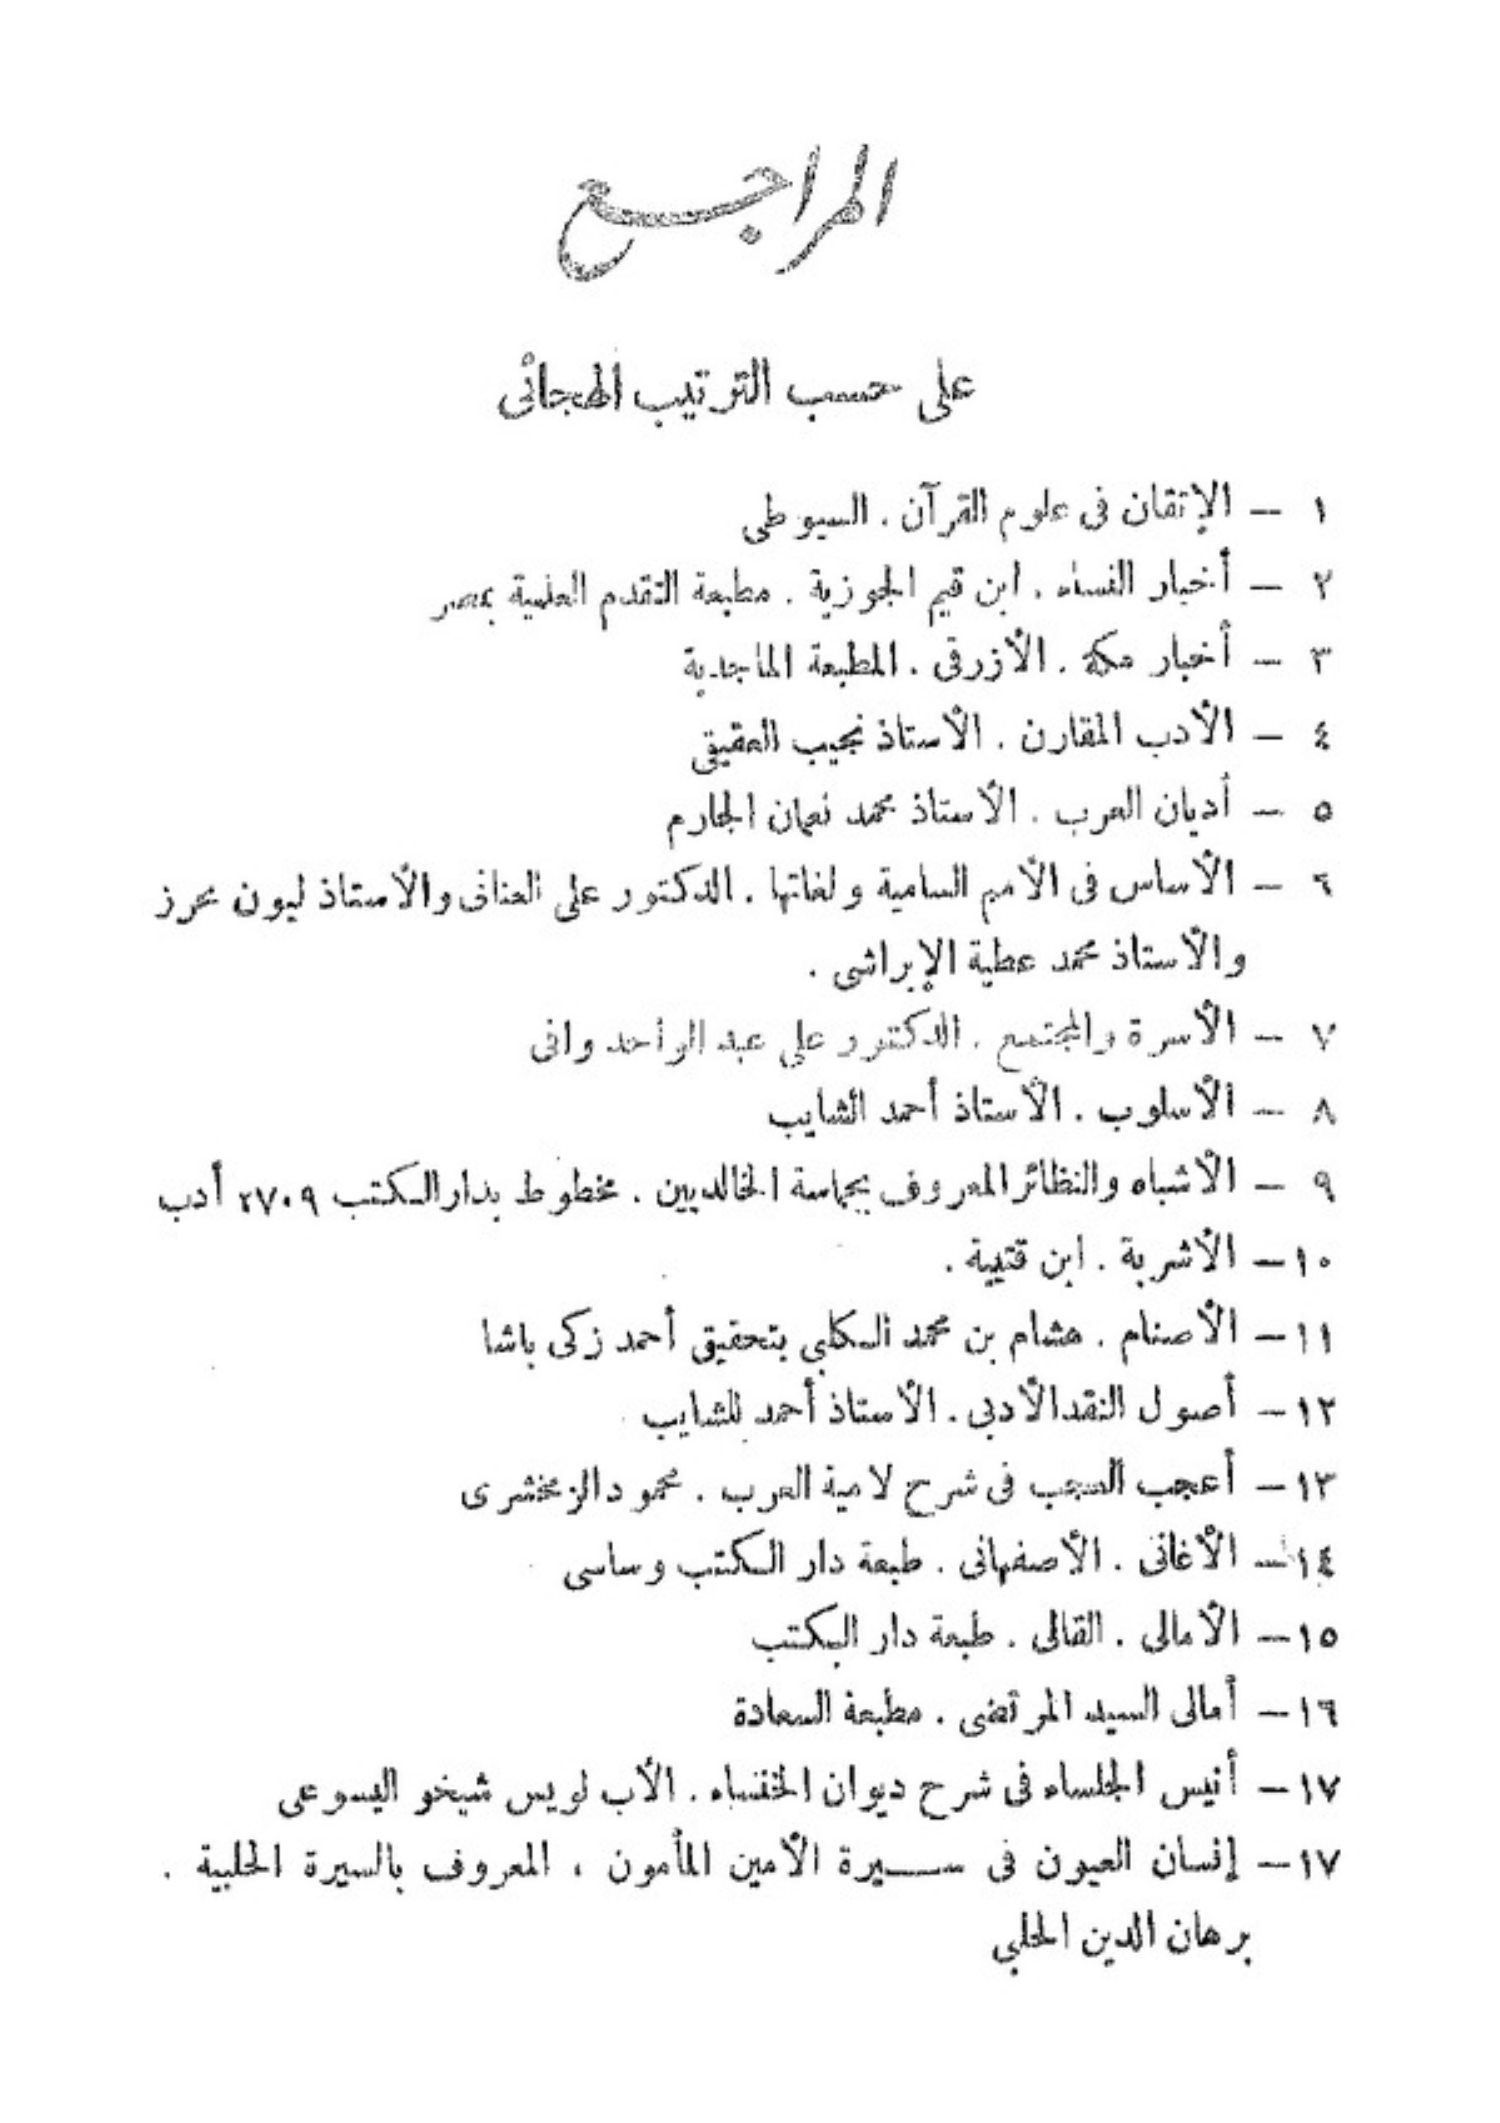 المراجع
على حسب الترتيب الهجائى
١ — الإتقان فى علوم القرآن . السيوطى
٢ — أخبار النساء . ابن قيم الجوزية . مطبعة التقدم العلمية بمصر
٣ — أخبار مكة . الأزرقى . المطبعة الماجدية
٤ — الأدب المقارن . الأستاذ نجيب العقيقى
٥ — أديان العرب . الأستاذ محمد نعمان الجارم
٦ — الأساس فى الأمم السامية ولغاتها . الدكتور على العنانى والأستاذ ليون محرز
والأستاذ محمد عطية الإبراشى .
٧ — الأسرة والمجتمع . الدكتور على عبد الواحد وافى
٨ — الأسلوب . الأستاذ أحمد الشايب
٩ — الأشباه والنظائر المعروف بحماسة الخالديين . مخطوط بدار الكتب ٢٧٠٩ أدب
١٠ — الأشربة . ابن قتيبة .
١١ — الأصنام . هشام بن محمد الكلبى بتحقيق أحمد زكى باشا
١٢ — أصول النقد الأدبى . الأستاذ أحمد الشايب
١٣ — أعجب العجب فى شرح لامية العرب . محمود الزمخشرى
١٤ — الأغانى . الأصفهانى . طبعة دار الكتب وساسى
١٥ — الأمالى . القالى . طبعة دار الكتب
١٦ — أمالى السيد المرتضى . مطبعة السعادة
١٧ — أنيس الجلساء فى شرح ديوان الخنساء . الأب لويس شيخو اليسوعى
١٧ — إنسان العيون فى سـيرة الأمين المأمون ، المعروف بالسيرة الحلبية .
برهان الدين الحلبى